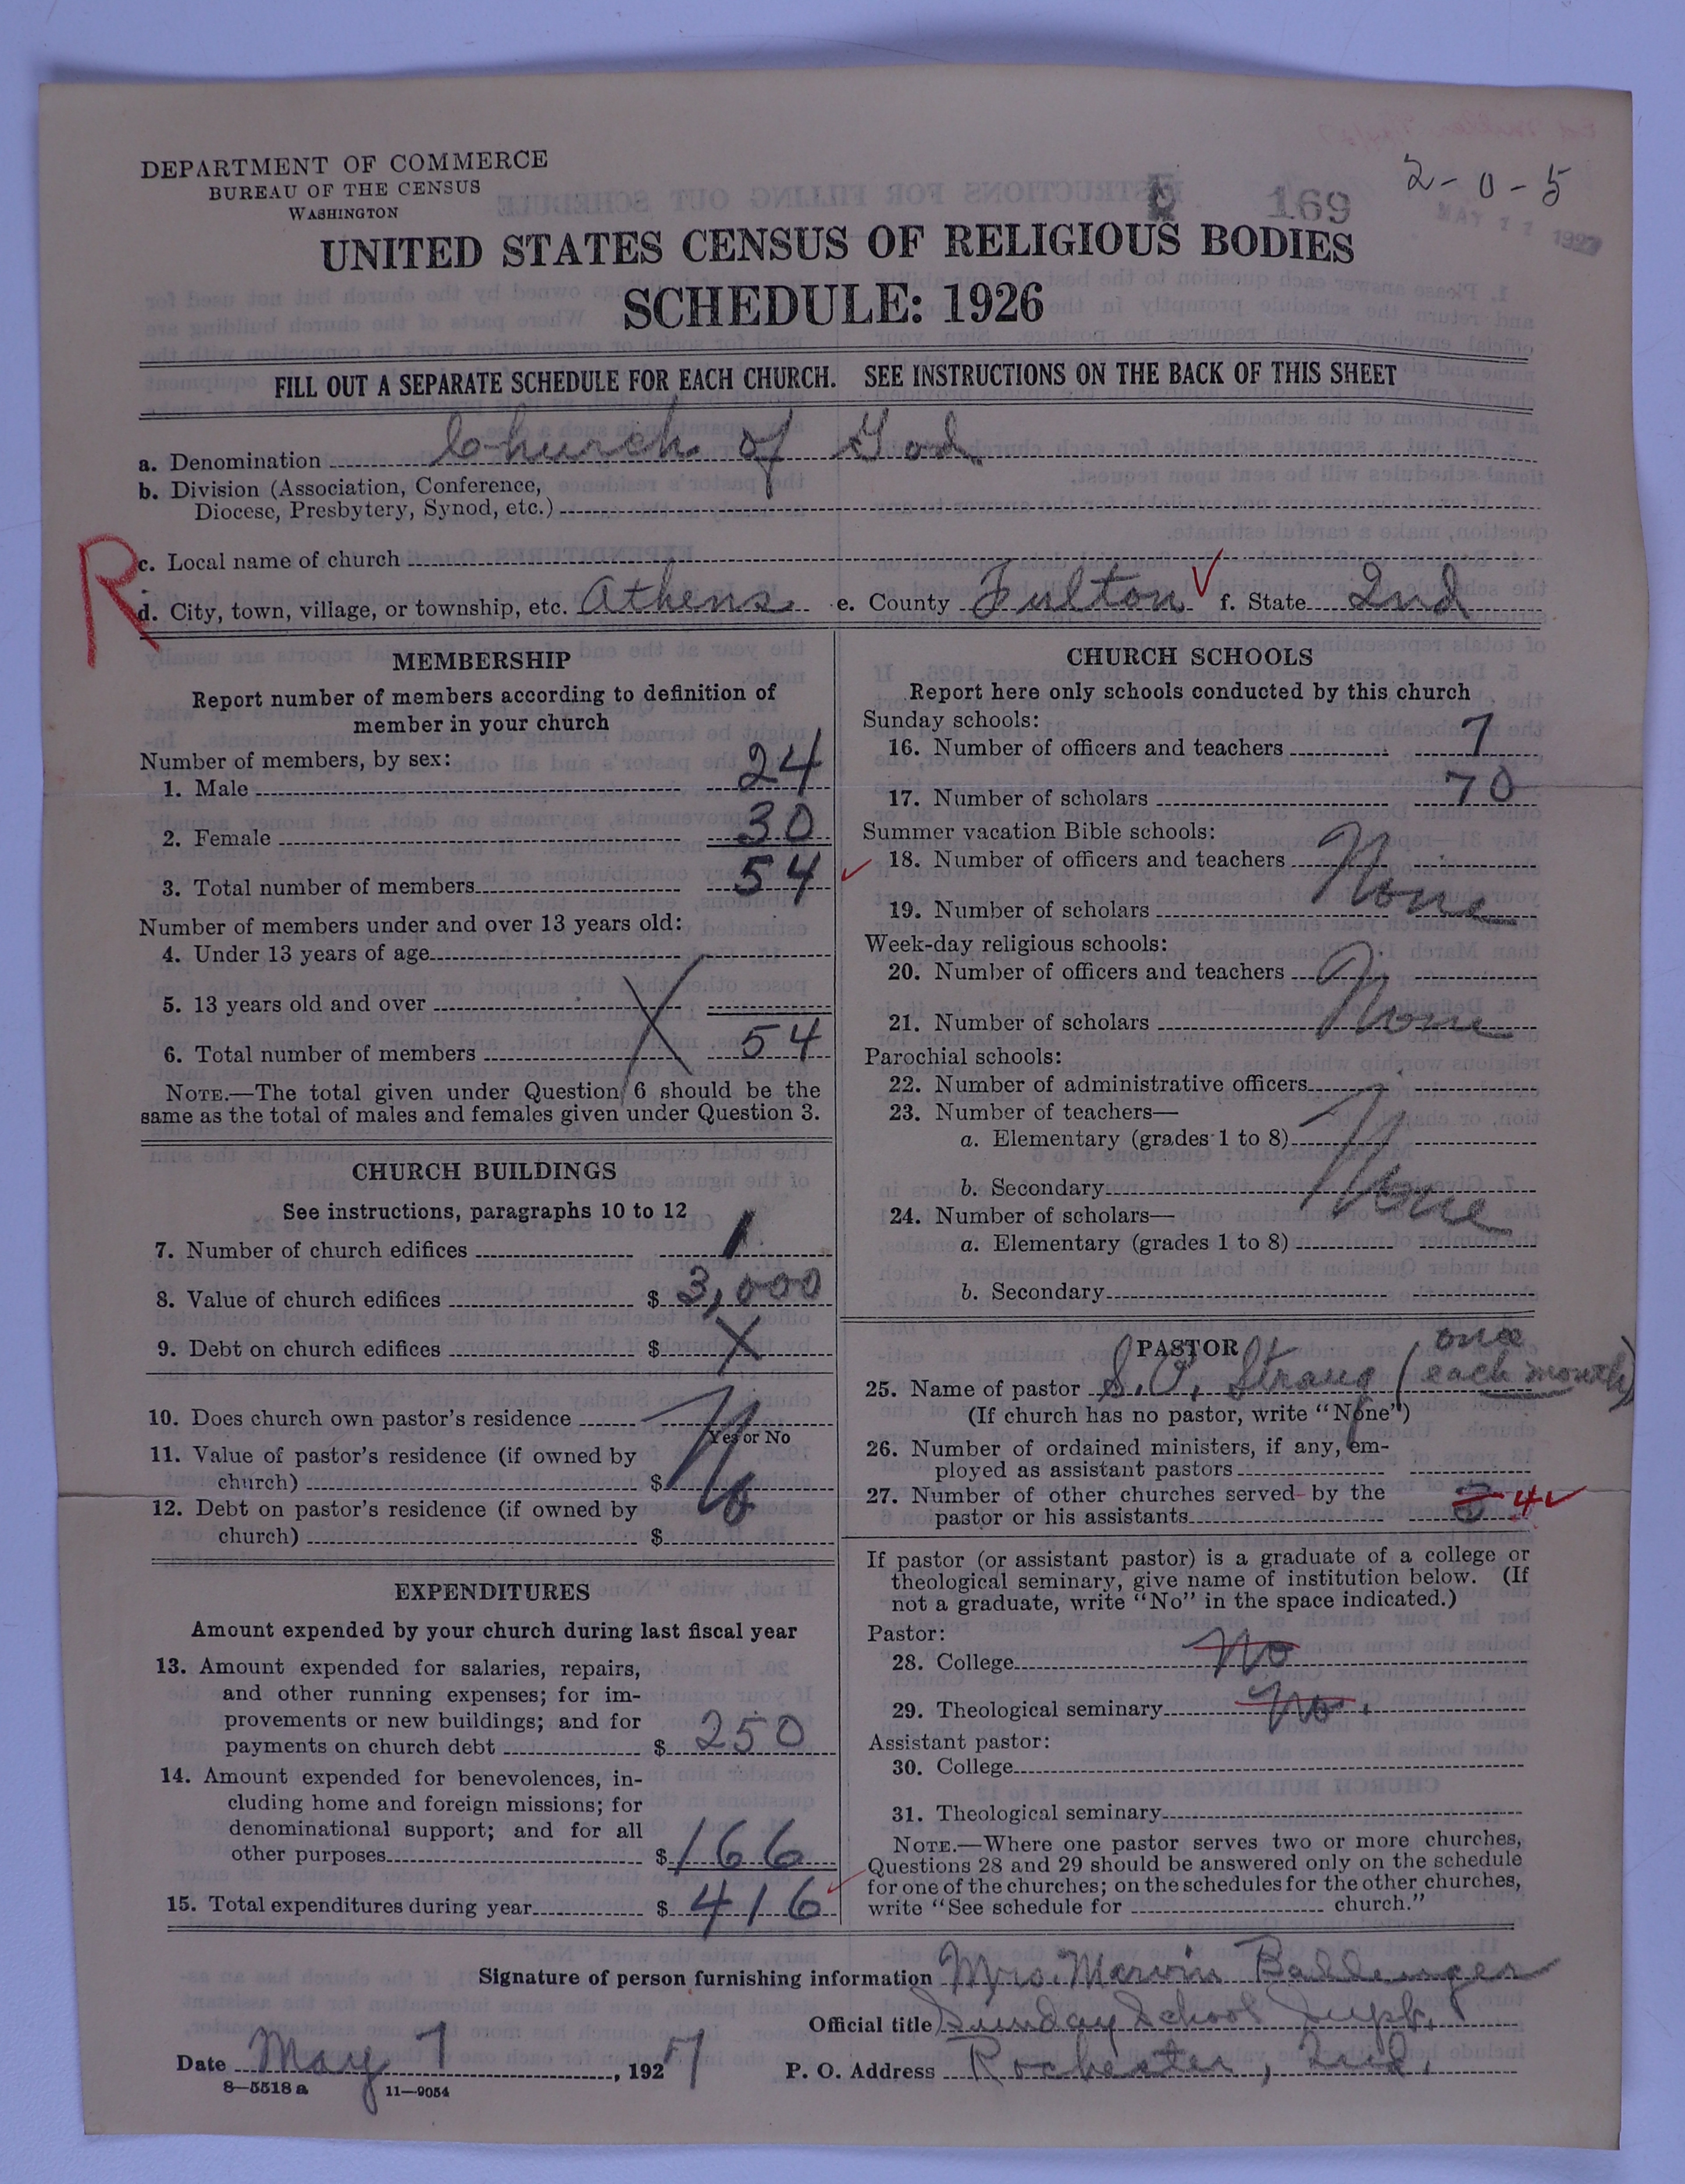 2-0-5
DEPARTMENT OF COMMERCE
BUREAU OF THE CENSUS
WASHINGTON
169
MAY 11 1927
UNITED STATES CENSUS OF RELIGIOUS BODIES
SCHEDULE: 1926
FILL OUT A SEPARATE SCHEDULE FOR EACH CHURCH. SEE INSTRUCTIONS ON THE BACK OF THIS SHEET
a. Denomination Church of God.
b. Division (Association, Conference,
Diocese, Presbytery, Synod, etc.)
R
c. Local name of church
d. City, town, village, or township, etc. Athens e. County Fulton f. State Ind
MEMBERSHIP
Report number of members according to definition of
member in your church
Number of members, by sex:
1. Male 24
2. Female 30
3. Total number of members 54
Number of members under and over 13 years old:
4. Under 13 years of age
5. 13 years old and over
6. Total number of members 54
NOTE.—The total given under Question 6 should be the
same as the total of males and females given under Question 3.
CHURCH BUILDINGS
See instructions, paragraphs 10 to 12
7. Number of church edifices 1
8. Value of church edifices $ 3,000
9. Debt on church edifices $ X
10. Does church own pastor's residence No
Yes or No
11. Value of pastor's residence (if owned by
church) $
12. Debt on pastor's residence (if owned by
church) $
EXPENDITURES
Amount expended by your church during last fiscal year
13. Amount expended for salaries, repairs,
and other running expenses; for im-
provements or new buildings; and for
payments on church debt $ 250
14. Amount expended for benevolences, in-
cluding home and foreign missions; for
denominational support; and for all
other purposes $ 166
15. Total expenditures during year $ 416
CHURCH SCHOOLS
Report here only schools conducted by this church
Sunday schools:
16. Number of officers and teachers 7
17. Number of scholars 70
Summer vacation Bible schools:
18. Number of officers and teachers None
19. Number of scholars
Week-day religious schools:
20. Number of officers and teachers None
21. Number of scholars
Parochial schools:
22. Number of administrative officers
23. Number of teachers—
a. Elementary (grades 1 to 8) None
b. Secondary
24. Number of scholars—
a. Elementary (grades 1 to 8)
b. Secondary
PASTOR
25. Name of pastor S. O. Strang (once each month)
(If church has no pastor, write "None")
26. Number of ordained ministers, if any, em-
ployed as assistant pastors
27. Number of other churches served by the
pastor or his assistants 4
If pastor (or assistant pastor) is a graduate of a college or
theological seminary, give name of institution below. (If
not a graduate, write "No" in the space indicated.)
Pastor:
28. College No
29. Theological seminary No.
Assistant pastor:
30. College
31. Theological seminary
NOTE.—Where one pastor serves two or more churches,
Questions 28 and 29 should be answered only on the schedule
for one of the churches; on the schedules for the other churches,
write "See schedule for church."
Signature of person furnishing information Mrs. Marvin Ballenger
Official title Sunday School Supt.
Date May 7, 1927 P. O. Address Rochester, Ind.
8—5518 a 11—9054